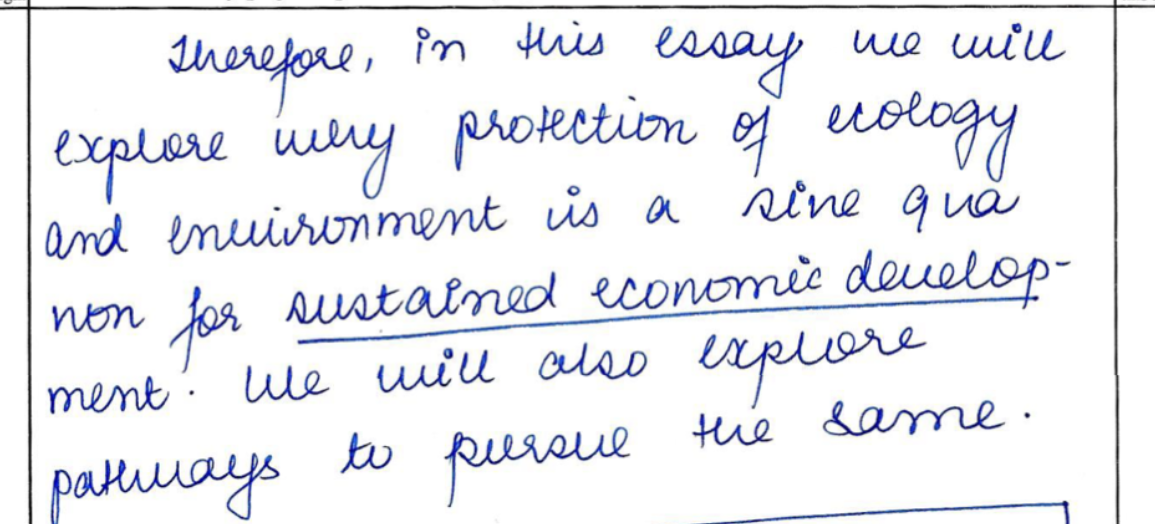 Therefore, in this essay we will
explore why protection of ecology
and environment is a sine qua
non for sustained economic develop-
ment. We will also explore
pathways to pursue the same.